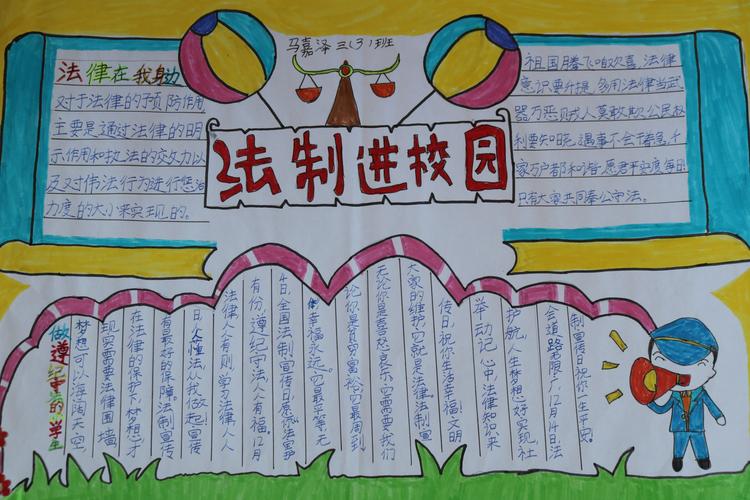 马嘉泽 三(3)班
法制进校园
法律在我身边
对于法律的预防作用
主要是通过法律的明
示作用和执法的效力以
及对伟法行为进行惩治
力度的大小来实现的。
祖国腾飞咱欢喜,法律
意识要升提,多用法律当武
器万恶贼人莫敢欺,公民权
利要知晓,遇事不会干着急,千
家万户都和谐,愿君平安度每日
只有大家共同奉公守法。
做遵纪守法的学生
梦想可以海阔天空
现实需要法律围墙
在法律的保护下,梦想才
有最好的保障。法制宣传
日,法,从我做起!宣传
法律人人有则,学习法律人人
有份,遵纪守法,人人有福。12月
4日,全国法制宣传日,愿你法宣护
幸福永远。四最平等:无
论你是贫穷富裕,四最周到
无论你是喜怒哀乐,四需要我们
大家的维护,四就是法律。法制宣
传日,祝你生活幸福!文明
举动记心中,法律知识来
护航,人生梦想好实现,社
会道路无限广,12月4日法
制宣传日,祝你一生平安。